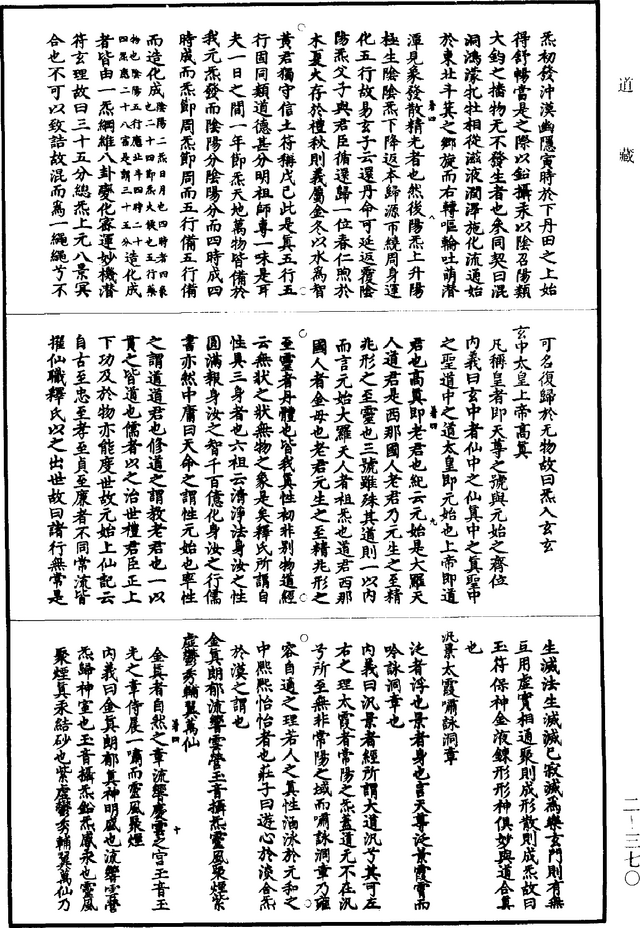 道藏
炁初發沖漠幽隱寅時於下丹田之上始
得舒暢當是之際以鉛攝汞以陰召陽類
大鈞之播物无不發生者也參同契曰混
洞鴻濛牝牡相從滋液潤澤施化流通始
於東北斗箕之鄉旋而右轉嘔輪吐萌潛
潭見象發散精光者也然後陽炁上升陽
極生陰陰炁下降返本歸源帀繞周身運
化五行故易玄子云還丹命可延返覆陰
陽炁父子與君臣循還歸一位春仁煦於
木夏火存於禮秋則義屬金冬以水為智
黃君獨守信土符稱戊己此是真五行五
行因同類道德甚分明祖師專一味是耳
夫一日之間一年節炁天地萬物皆備於
我元炁發而陰陽分陰陽分而四時成四
時成而炁節周炁節周而五行備五行備
而造化成陰陽二炁日月也四時者四象也二十四節炁火候也五行藥物也陰陽五行應北斗四時二十四炁應二十八宿是謂三十五分造化成
者皆由一炁綱維八卦變化審運妙機潛
符玄理故曰三十五分總炁上元八景冥
合也不可以致詰故混而為一繩繩兮不
可名復歸於无物故曰炁入玄玄
玄中太皇上帝高真
凡稱皇者即天尊之號與元始之齊位
內義曰玄中者仙中之仙真中之真聖中
之聖道中之道太皇即元始也上帝即道
君也高真即老君也紀云元始是大羅天
人道君是西那國人老君乃元生之至精
兆形之至靈也三號雖殊其道則一以內
而言元始大羅天人者祖炁也道君西那
國人者金母也老君元生之至精兆形之
至靈者丹體也皆我真性初非別物道經
云無狀之狀無物之象是矣釋氏所謂自
性具三身者也六祖云清淨法身汝之性
圓滿報身汝之智千百億化身汝之行儒
書亦然中庸曰天命之謂性元始也率性
之謂道道君也修道之謂教老君也一以
貫之皆道也儒者以之治世禮君臣正上
下功及於物亦能度世故元始上仙記云
自古至忠至孝至貞至廉者不同常流皆
擢仙職釋氏以之出世故曰諸行無常是
生滅法生滅滅已寂滅為樂玄門則有無
互用虛實相通聚則成形散則成炁故曰
玉符保神金液鍊形形神俱妙與道合真
也
汎景太霞嘯詠洞章
泛者浮也景者身也言天尊泛景霞霄而
吟詠洞章也
內義曰汎景者經所謂大道汎兮其可左
右之理太霞者常陽之炁蓋道无不在汎
兮所至無非常陽之域而嘯詠洞章乃雍
容自適之理若人之真性涵泳於元和之
中熙熙怡怡者也莊子曰遊心於淡合炁
於漠之謂也
金真朗郁流響雲營玉音攝炁靈風聚煙紫
虛鬱秀輔翼萬仙
金真者自然之章流響慶雲之宮玉音玉
光之章侍晨一嘯而靈風聚煙
內義曰金真朗郁真神明盛也流響雲營
炁歸神室也玉音攝炁鉛炁感汞也靈風
聚煙真汞結砂也紫虛鬱秀輔翼萬仙乃
二-三七〇